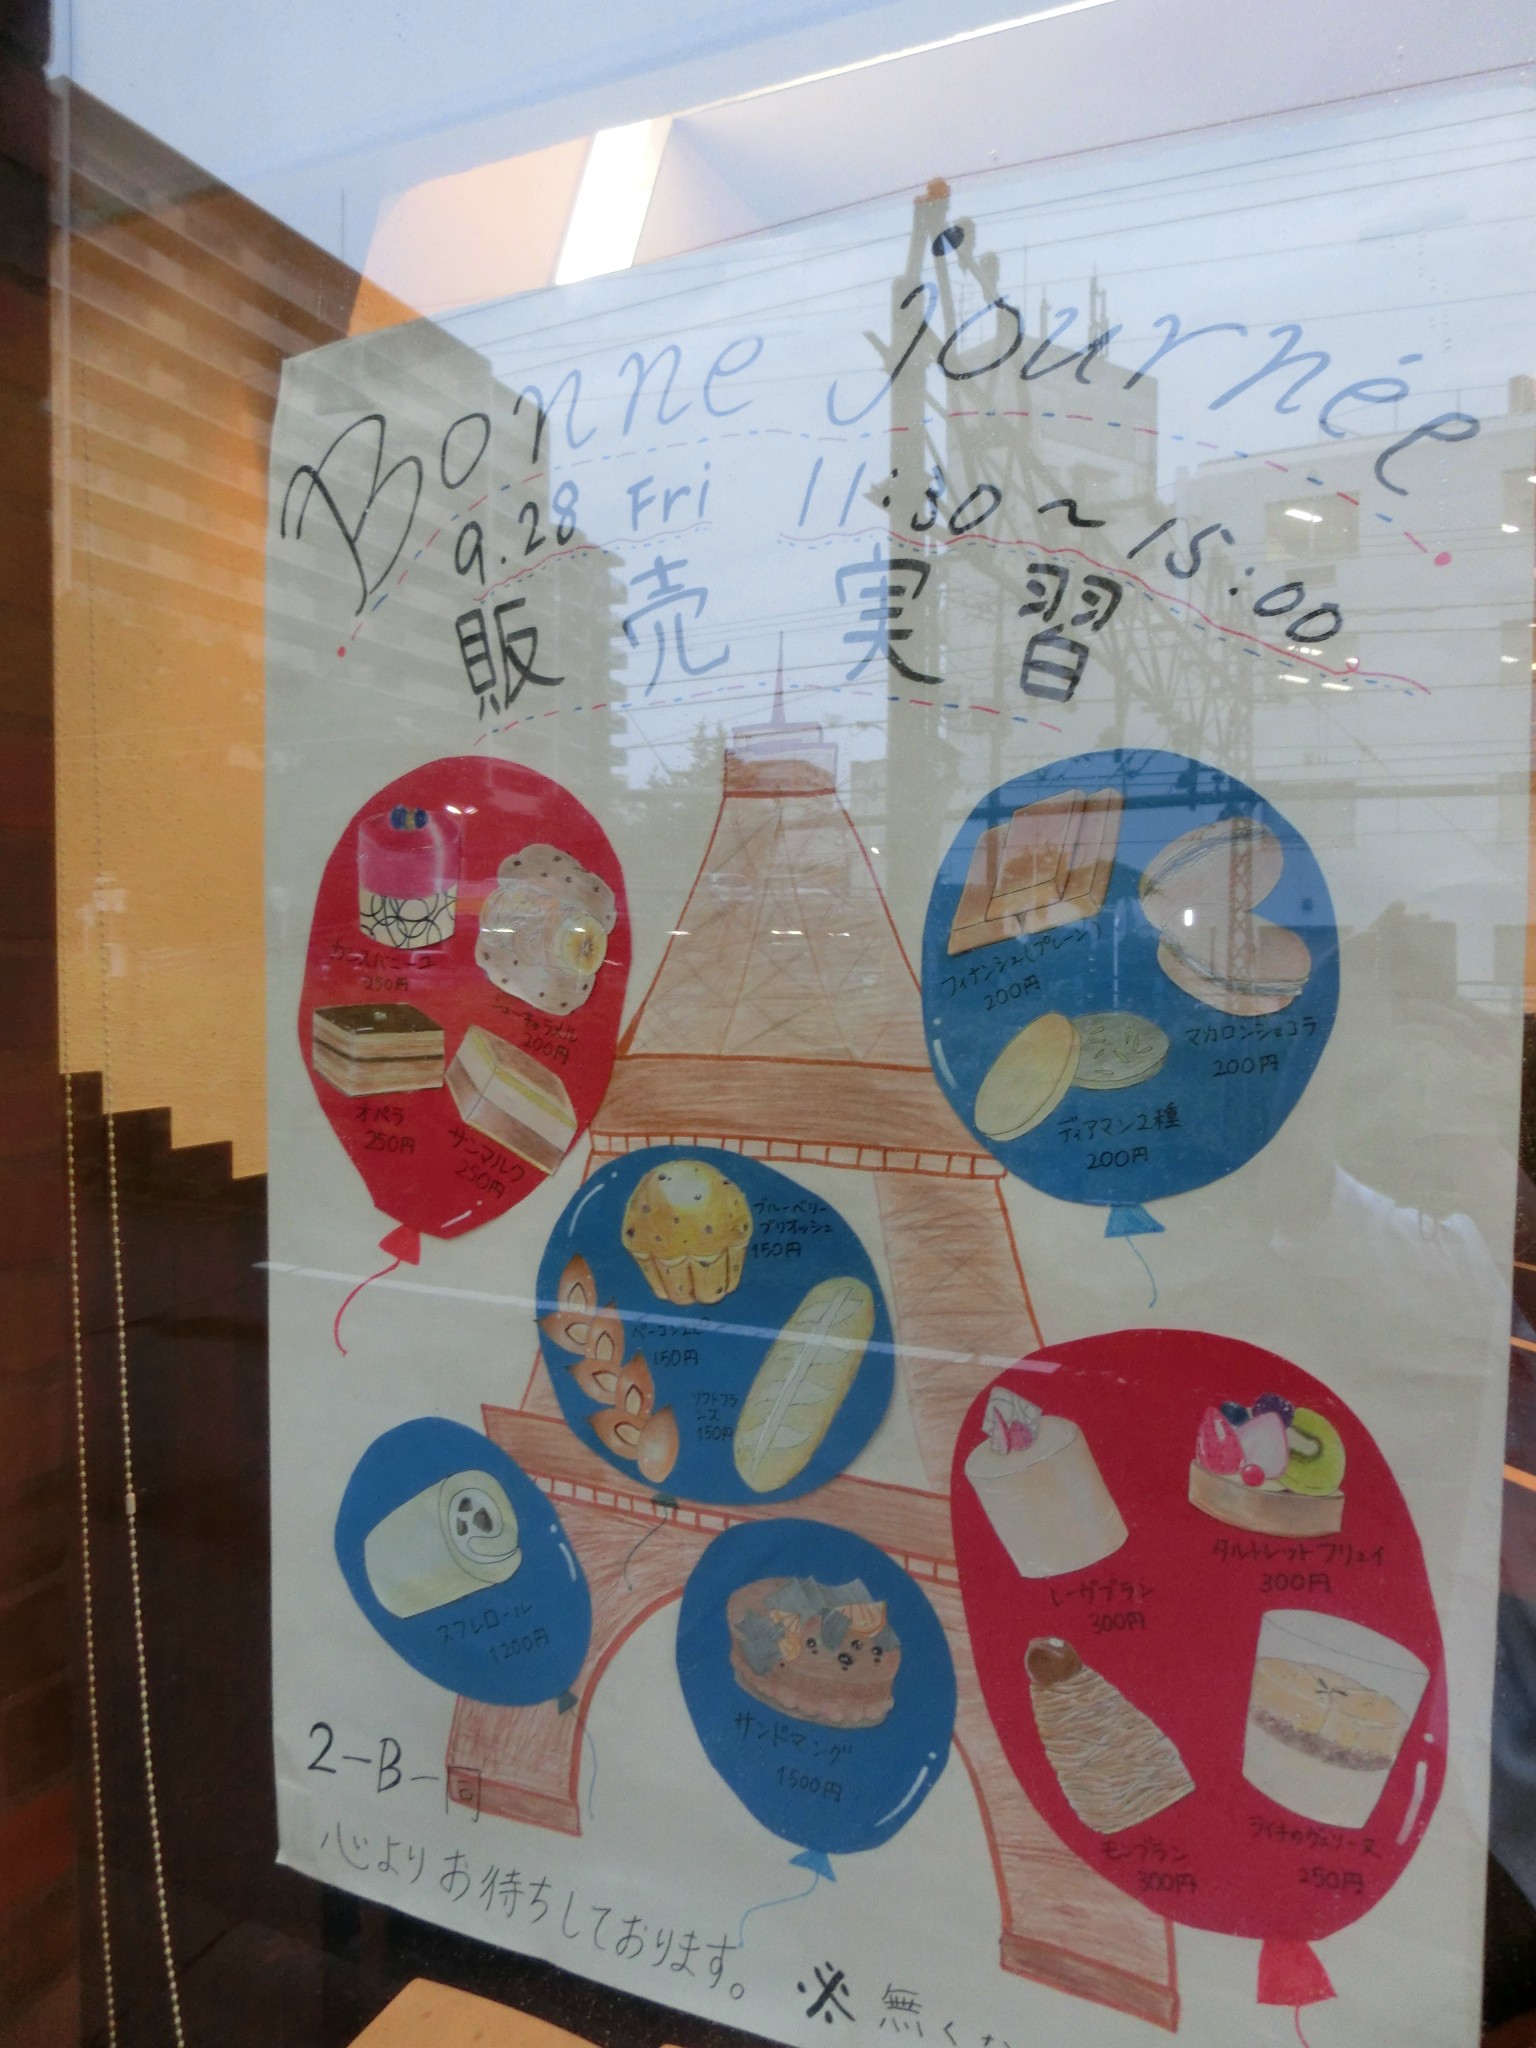 Bonne journée
9.28 Fri 11:30～15:00
販売実習
カシスバニーユ
250円
シューキャラメル
200円
オペラ
250円
サンマルク
250円
フィナンシェ(プレーン)
200円
マカロンショコラ
200円
ディアマン2種
200円
ブルーベリー
ブリオッシュ
150円
ベーコンエピ
150円
ソフトフラ
ンス
150円
スフレロール
1200円
サンドマング
1500円
レーヴブラン
300円
タルトレットフリュイ
300円
モンブラン
300円
ライチのヴェリーヌ
250円
2-B-同
心よりお待ちしております。
※無くな